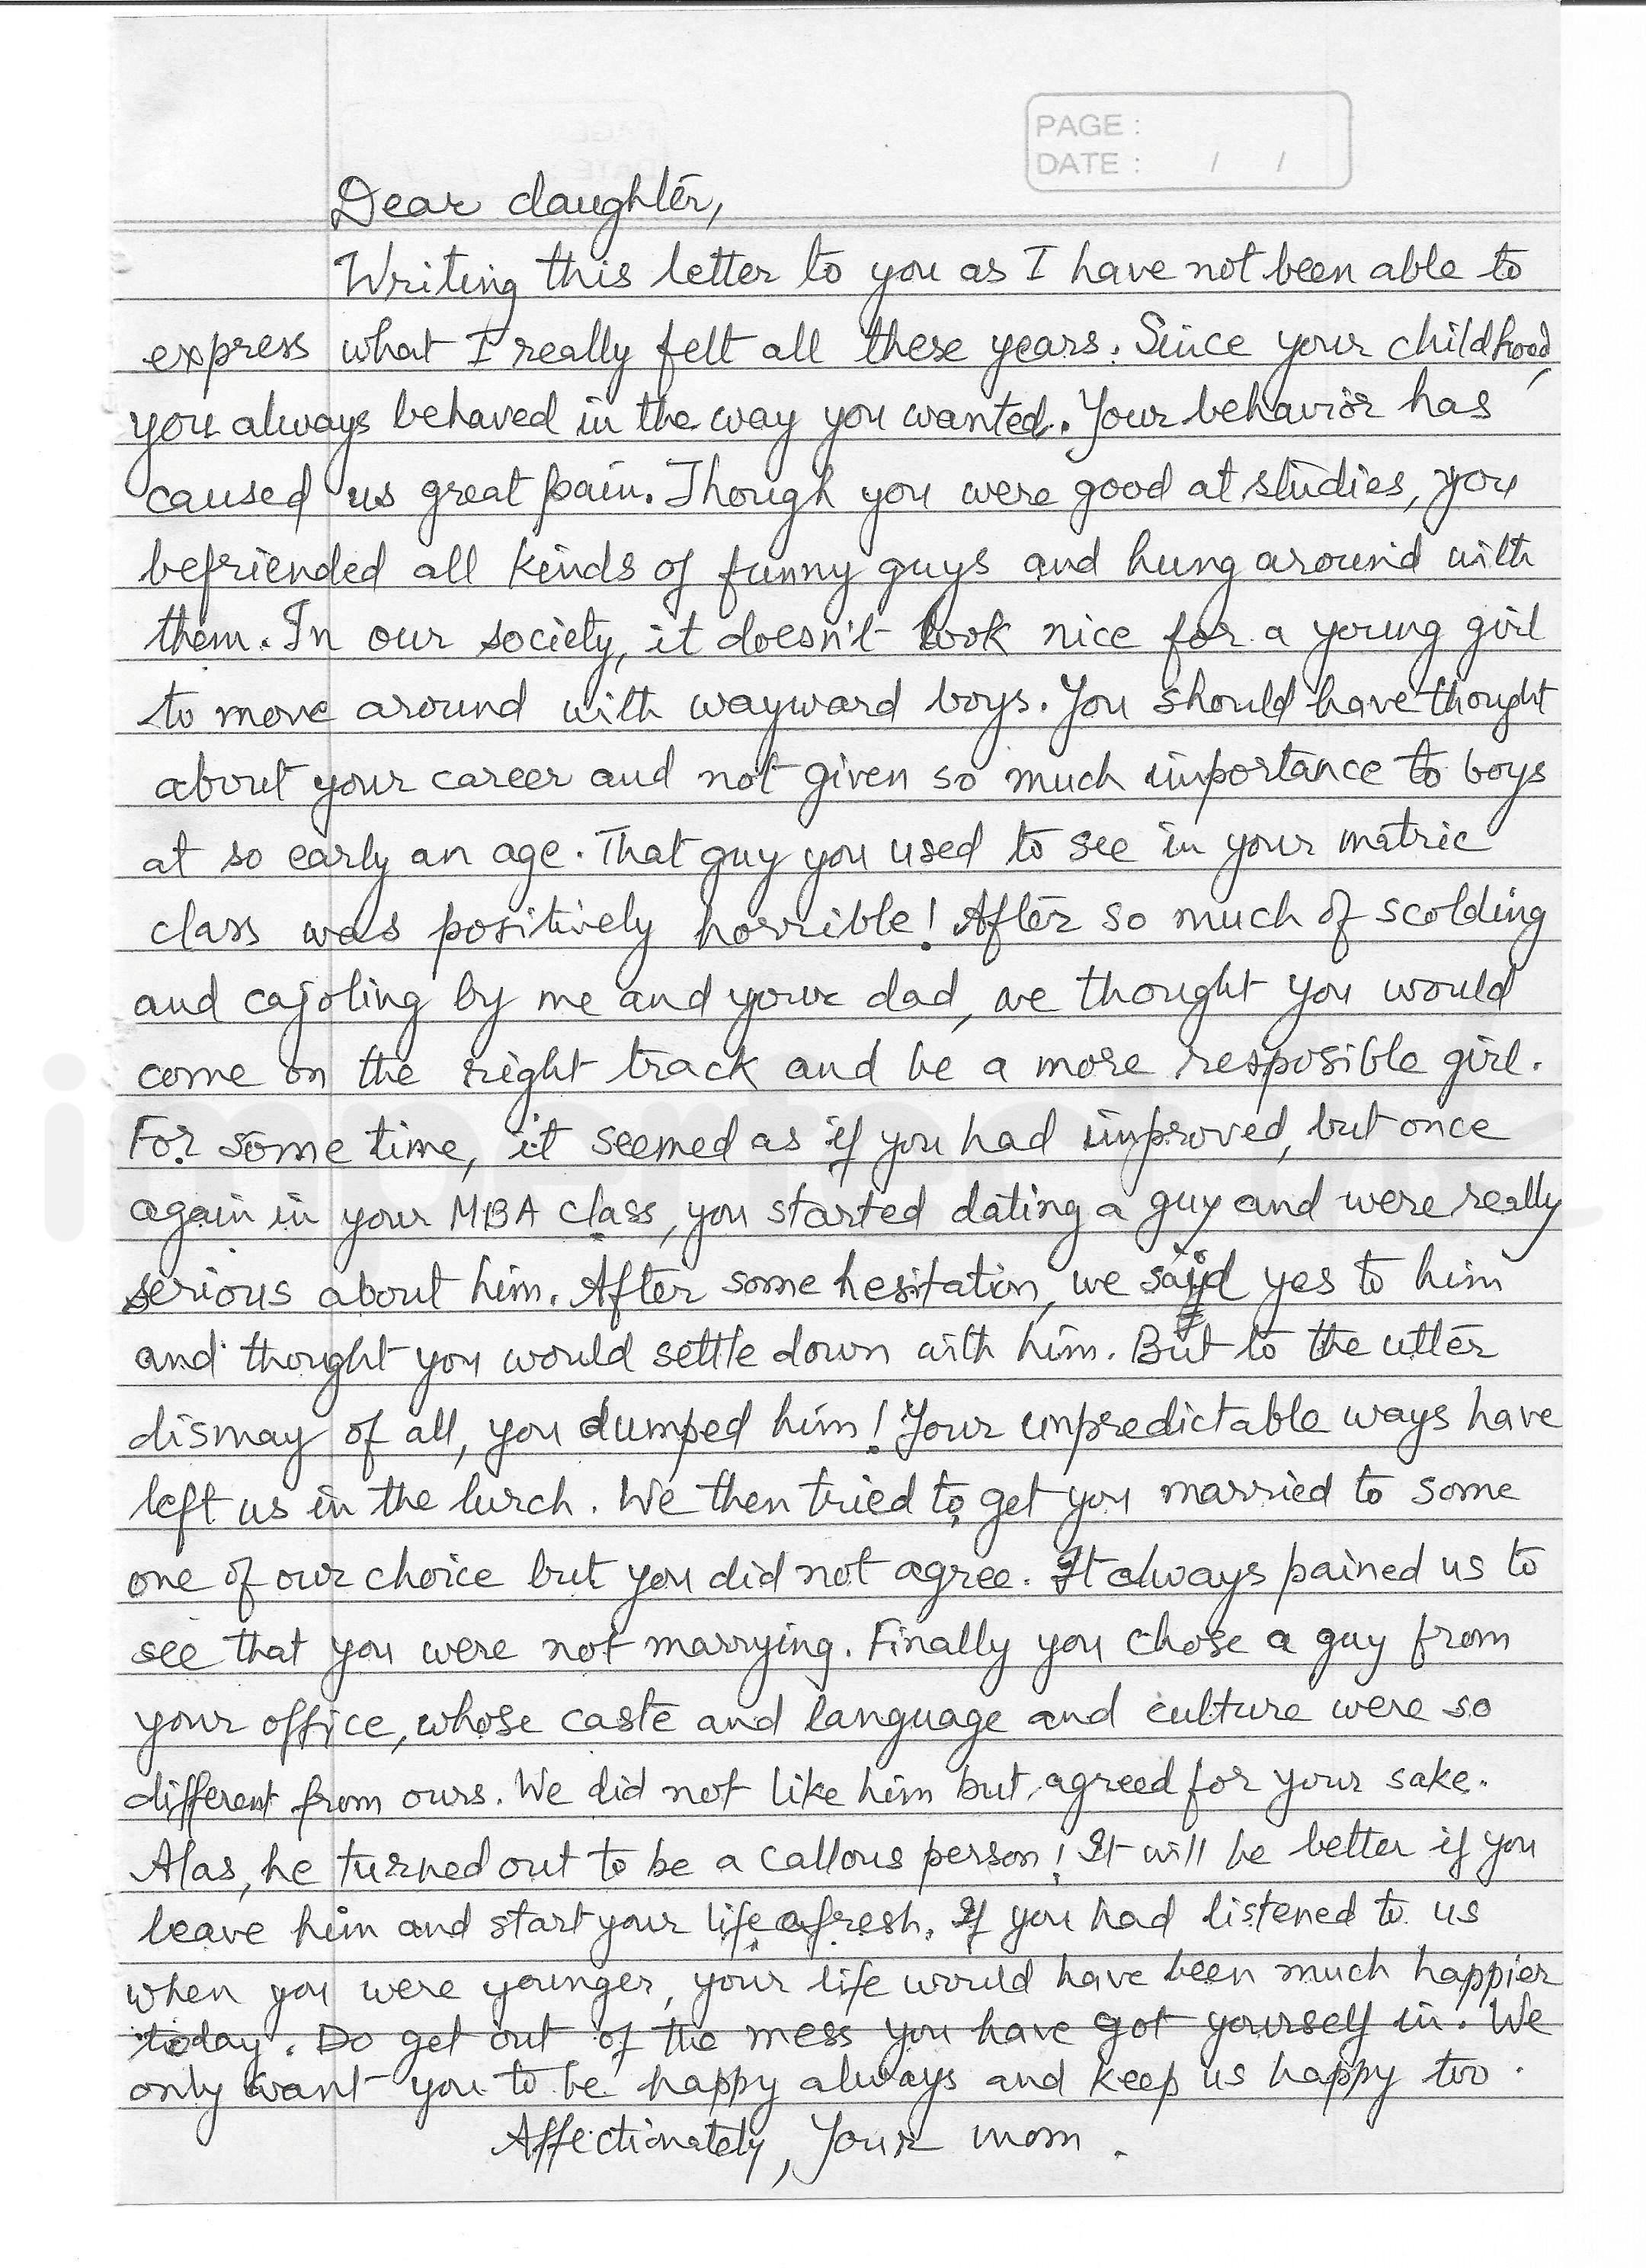 PAGE :
DATE : / /
Dear daughter,
Writing this letter to you as I have not been able to
express what I really felt all these years. Since your childhood,
you always behaved in the way you wanted. Your behavior has
caused us great pain. Though you were good at studies, you
befriended all kinds of funny guys and hung around with
them. In our society, it doesn't look nice for a young girl
to move around with wayward boys. You should have thought
about your career and not given so much importance to boys
at so early an age. That guy you used to see in your matric
class was positively horrible! After so much of scolding
and cajoling by me and your dad, we thought you would
come on the right track and be a more resposible girl.
For some time, it seemed as if you had improved, but once
again in your MBA class, you started dating a guy and were really
serious about him. After some hesitation, we said yes to him
and thought you would settle down with him. But to the utter
dismay of all, you dumped him! Your unpredictable ways have
left us in the lurch. We then tried to get you married to some
one of our choice but you did not agree. It always pained us to
see that you were not marrying. Finally you chose a guy from
your office, whose caste and language and culture were so
different from ours. We did not like him but agreed for your sake.
Alas, he turned out to be a callous person! It will be better if you
leave him and start your life afresh. If you had listened to us
when you were younger, your life would have been much happier
today. Do get out of the mess you have got yourself in. We
only want you to be happy always and keep us happy too.
Affectionately, Your mom.